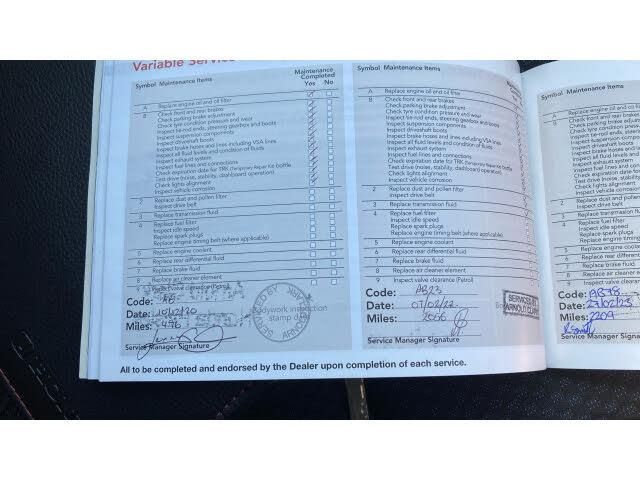 Variable Servic
Symbol Maintenance Items
Maintenance
Completed
Yes No
A Replace engine oil and oil filter
B Check front and rear brakes
Check parking brake adjustment
Check tyre condition pressure and wear
Inspect tie-rod ends, steering gearbox and boots
Inspect suspension components
Inspect driveshaft boots
Inspect brake hoses and lines including VSA lines
Inspect all fluid levels and condition of fluids
Inspect exhaust system
Inspect fuel lines and connections
Check expiration date for TRK (Temporary Repair Kit) bottle
Test drive (noise, stability, dashboard operation)
Check lights alignment
Inspect vehicle corrosion
2 Replace dust and pollen filter
Inspect drive belt
3 Replace transmission fluid
4 Replace fuel filter
Inspect idle speed
Replace spark plugs
Replace engine timing belt (where applicable)
5 Replace engine coolant
6 Replace rear differential fluid
7 Replace brake fluid
8 Replace air cleaner element
Inspect valve clearance (Petrol)
Code:
Date: 10/02/20
Miles: 1476
Bodywork inspection
stamp
SERVICED BY
ARNOLD CLARK
Service Manager Signature
Symbol Maintenance Items
A Replace engine oil and oil filter
B Check front and rear brakes
Check parking brake adjustment
Check tyre condition pressure and wear
Inspect tie-rod ends, steering gearbox and boots
Inspect suspension components
Inspect driveshaft boots
Inspect brake hoses and lines including VSA lines
Inspect all fluid levels and condition of fluids
Inspect exhaust system
Inspect fuel lines and connections
Check expiration date for TRK (Temporary Repair Kit)
Test drive (noise, stability, dashboard operation)
Check lights alignment
Inspect vehicle corrosion
2 Replace dust and pollen filter
Inspect drive belt
3 Replace transmission fluid
4 Replace fuel filter
Inspect idle speed
Replace spark plugs
Replace engine timing belt (where applicable)
5 Replace engine coolant
6 Replace rear differential fluid
7 Replace brake fluid
8 Replace air cleaner element
9 Inspect valve clearance (Petrol)
Code: AB23
Date: 07/02/22
Miles: 2066
SERVICED BY
ARNOLD CLARK
Service Manager Signature
Symbol Maintenance Items
A Replace engine oil and
B Check front and rear
Check parking brake adju
Check tyre condition
Inspect tie-rod ends,
Inspect suspension
Inspect driveshaft
Inspect brake hoses
Inspect all fluid levels
Inspect exhaust system
Inspect fuel lines and
Check expiration date for
Test drive (noise, stability
Check lights alignment
Inspect vehicle corrosion
2 Replace dust and pollen
Inspect drive belt
3 Replace transmission fl
4 Replace fuel filter
Inspect idle speed
Replace spark plugs
Replace engine timing
5 Replace engine coola
6 Replace rear differential
7 Replace brake fluid
8 Replace air cleaner ele
9 Inspect valve clearance
Code: AB78
Date: 27/02/23
Miles: 2209
Service Manager Signa
All to be completed and endorsed by the Dealer upon completion of each service.